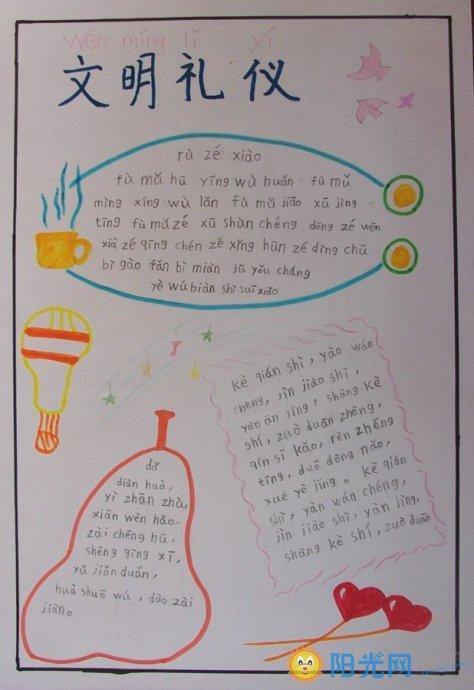 wén míng lǐ yí
文明礼仪
rù zé xiào
fù mǔ hū yīng wù huǎn fù mǔ
mìng xíng wù lǎn fù mǔ jiāo xū jìng
tīng fù mǔ zé xū shùn chéng dōng zé wēn
xià zé qīng chén zé xǐng hūn zé dìng chū
bì gào fǎn bì miàn jū yǒu cháng
yè wú biàn shì suī xiǎo
kè qián shì, yào wán
chéng, jìn jiào shì,
yào ān jìng, shàng kè
shí, zuò duān zhèng,
qín sī kǎo, rèn zhēng
tīng, duō dòng nǎo,
xué yè jīng。 kè qián
shì, yàn wán chéng,
jìn jiào shì, yàn jìng,
shàng kè shí, zuò duān
dǎ
diàn huà,
yì zhān zhù,
xiān wèn hǎo,
zài chēng hū,
shēng qīng xī,
yǔ jiǎn duǎn,
huà shuō wú, dào zài
jiàn。
阳光网